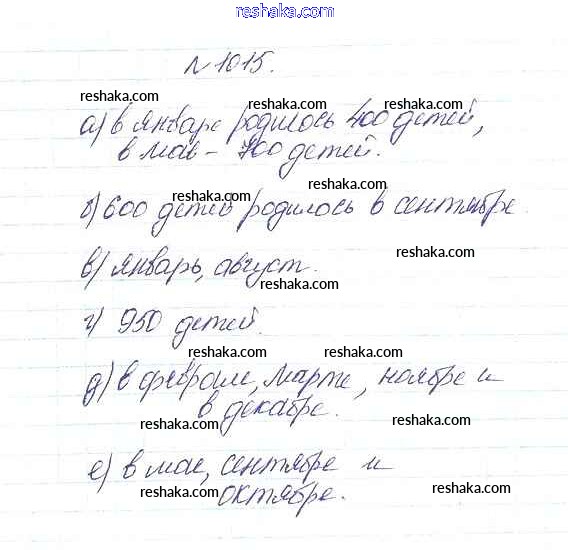 reshaka.com
№ 1015.
reshaka.com reshaka.com reshaka.com
а) в январе родилось 400 детей,
в мае – 700 детей.
reshaka.com reshaka.com
б) 600 детей родилось в сентябре.
reshaka.com
в) январь, август.
reshaka.com
г) 950 детей.
reshaka.com reshaka.com
д) в феврале, марте, ноябре и
в декабре.
reshaka.com reshaka.com
е) в мае, сентябре и
октябре.
reshaka.com reshaka.com
reshaka.com